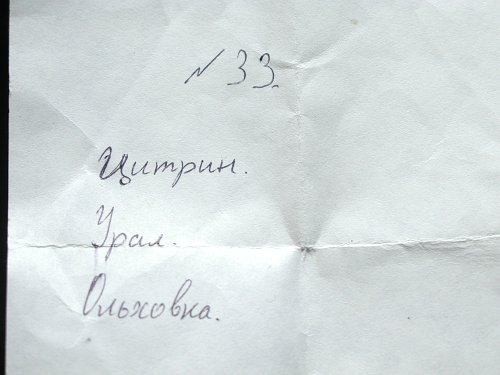 N 33.
Цитрин.
Урал.
Ольховка.